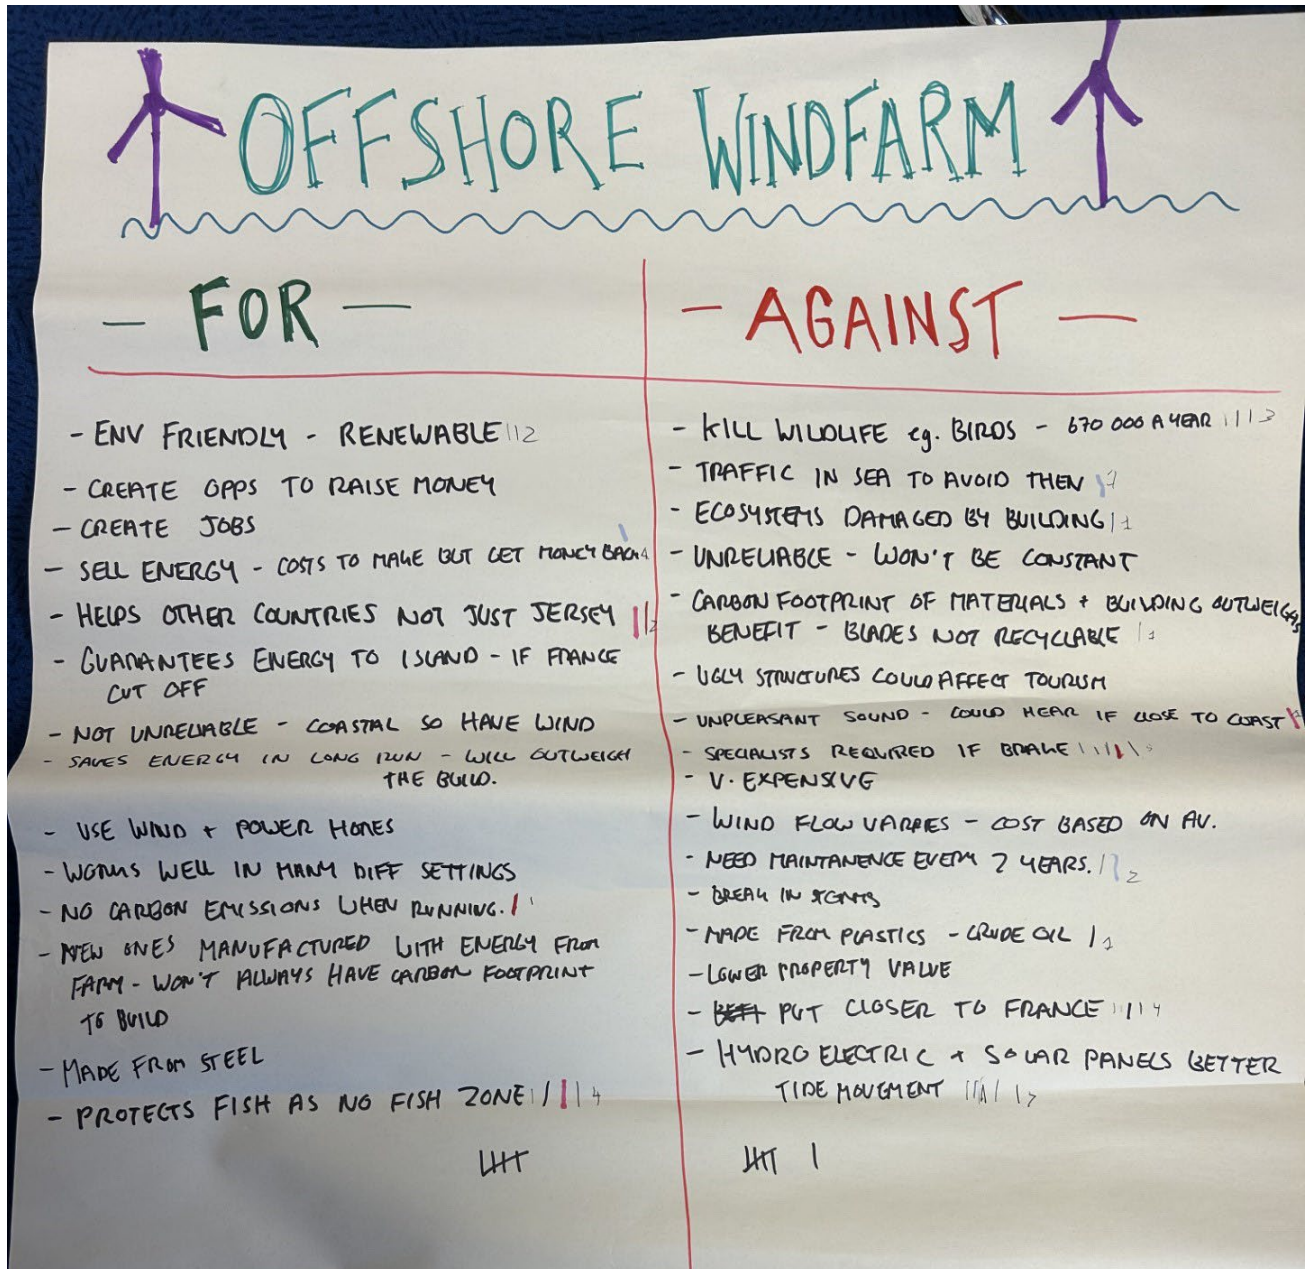 OFFSHORE WINDFARM
- FOR -
- ENV FRIENDLY - RENEWABLE 2
- CREATE OPPS TO RAISE MONEY
- CREATE JOBS
- SELL ENERGY - COSTS TO MAKE BUT GET MONEY BACK
- HELPS OTHER COUNTRIES NOT JUST JERSEY
- GUARANTEES ENERGY TO ISLAND - IF FRANCE
CUT OFF
- NOT UNRELIABLE - COASTAL SO HAVE WIND
- SAVES ENERGY IN LONG RUN - WILL OUTWEIGH
THE BUILD.
- USE WIND + POWER HOMES
- WORKS WELL IN MANY DIFF SETTINGS
- NO CARBON EMISSIONS WHEN RUNNING.
- NEW ONES MANUFACTURED WITH ENERGY FROM
FARM - WON'T ALWAYS HAVE CARBON FOOTPRINT
TO BUILD
- MADE FROM STEEL
- PROTECTS FISH AS NO FISH ZONE 4
- AGAINST -
- KILL WILDLIFE eg. BIRDS - 670 000 A YEAR 3
- TRAFFIC IN SEA TO AVOID THEN
- ECOSYSTEMS DAMAGED BY BUILDING 1
- UNRELIABLE - WON'T BE CONSTANT
- CARBON FOOTPRINT OF MATERIALS + BUILDING OUTWEIGHS
BENEFIT - BLADES NOT RECYCLABLE 1
- UGLY STRUCTURES COULD AFFECT TOURISM
- UNPLEASANT SOUND - COULD HEAR IF CLOSE TO COAST
- SPECIALISTS REQUIRED IF BRAKE
- V. EXPENSIVE
- WIND FLOW VARIES - COST BASED ON AV.
- NEED MAINTANENCE EVERY 2 YEARS. 2
- BREAK IN
- MADE FROM PLASTICS - CRUDE OIL 1
- LOWER PROPERTY VALUE
- PUT CLOSER TO FRANCE 4
- HYDRO ELECTRIC + SOLAR PANELS BETTER
TIDE MOVEMENT 7